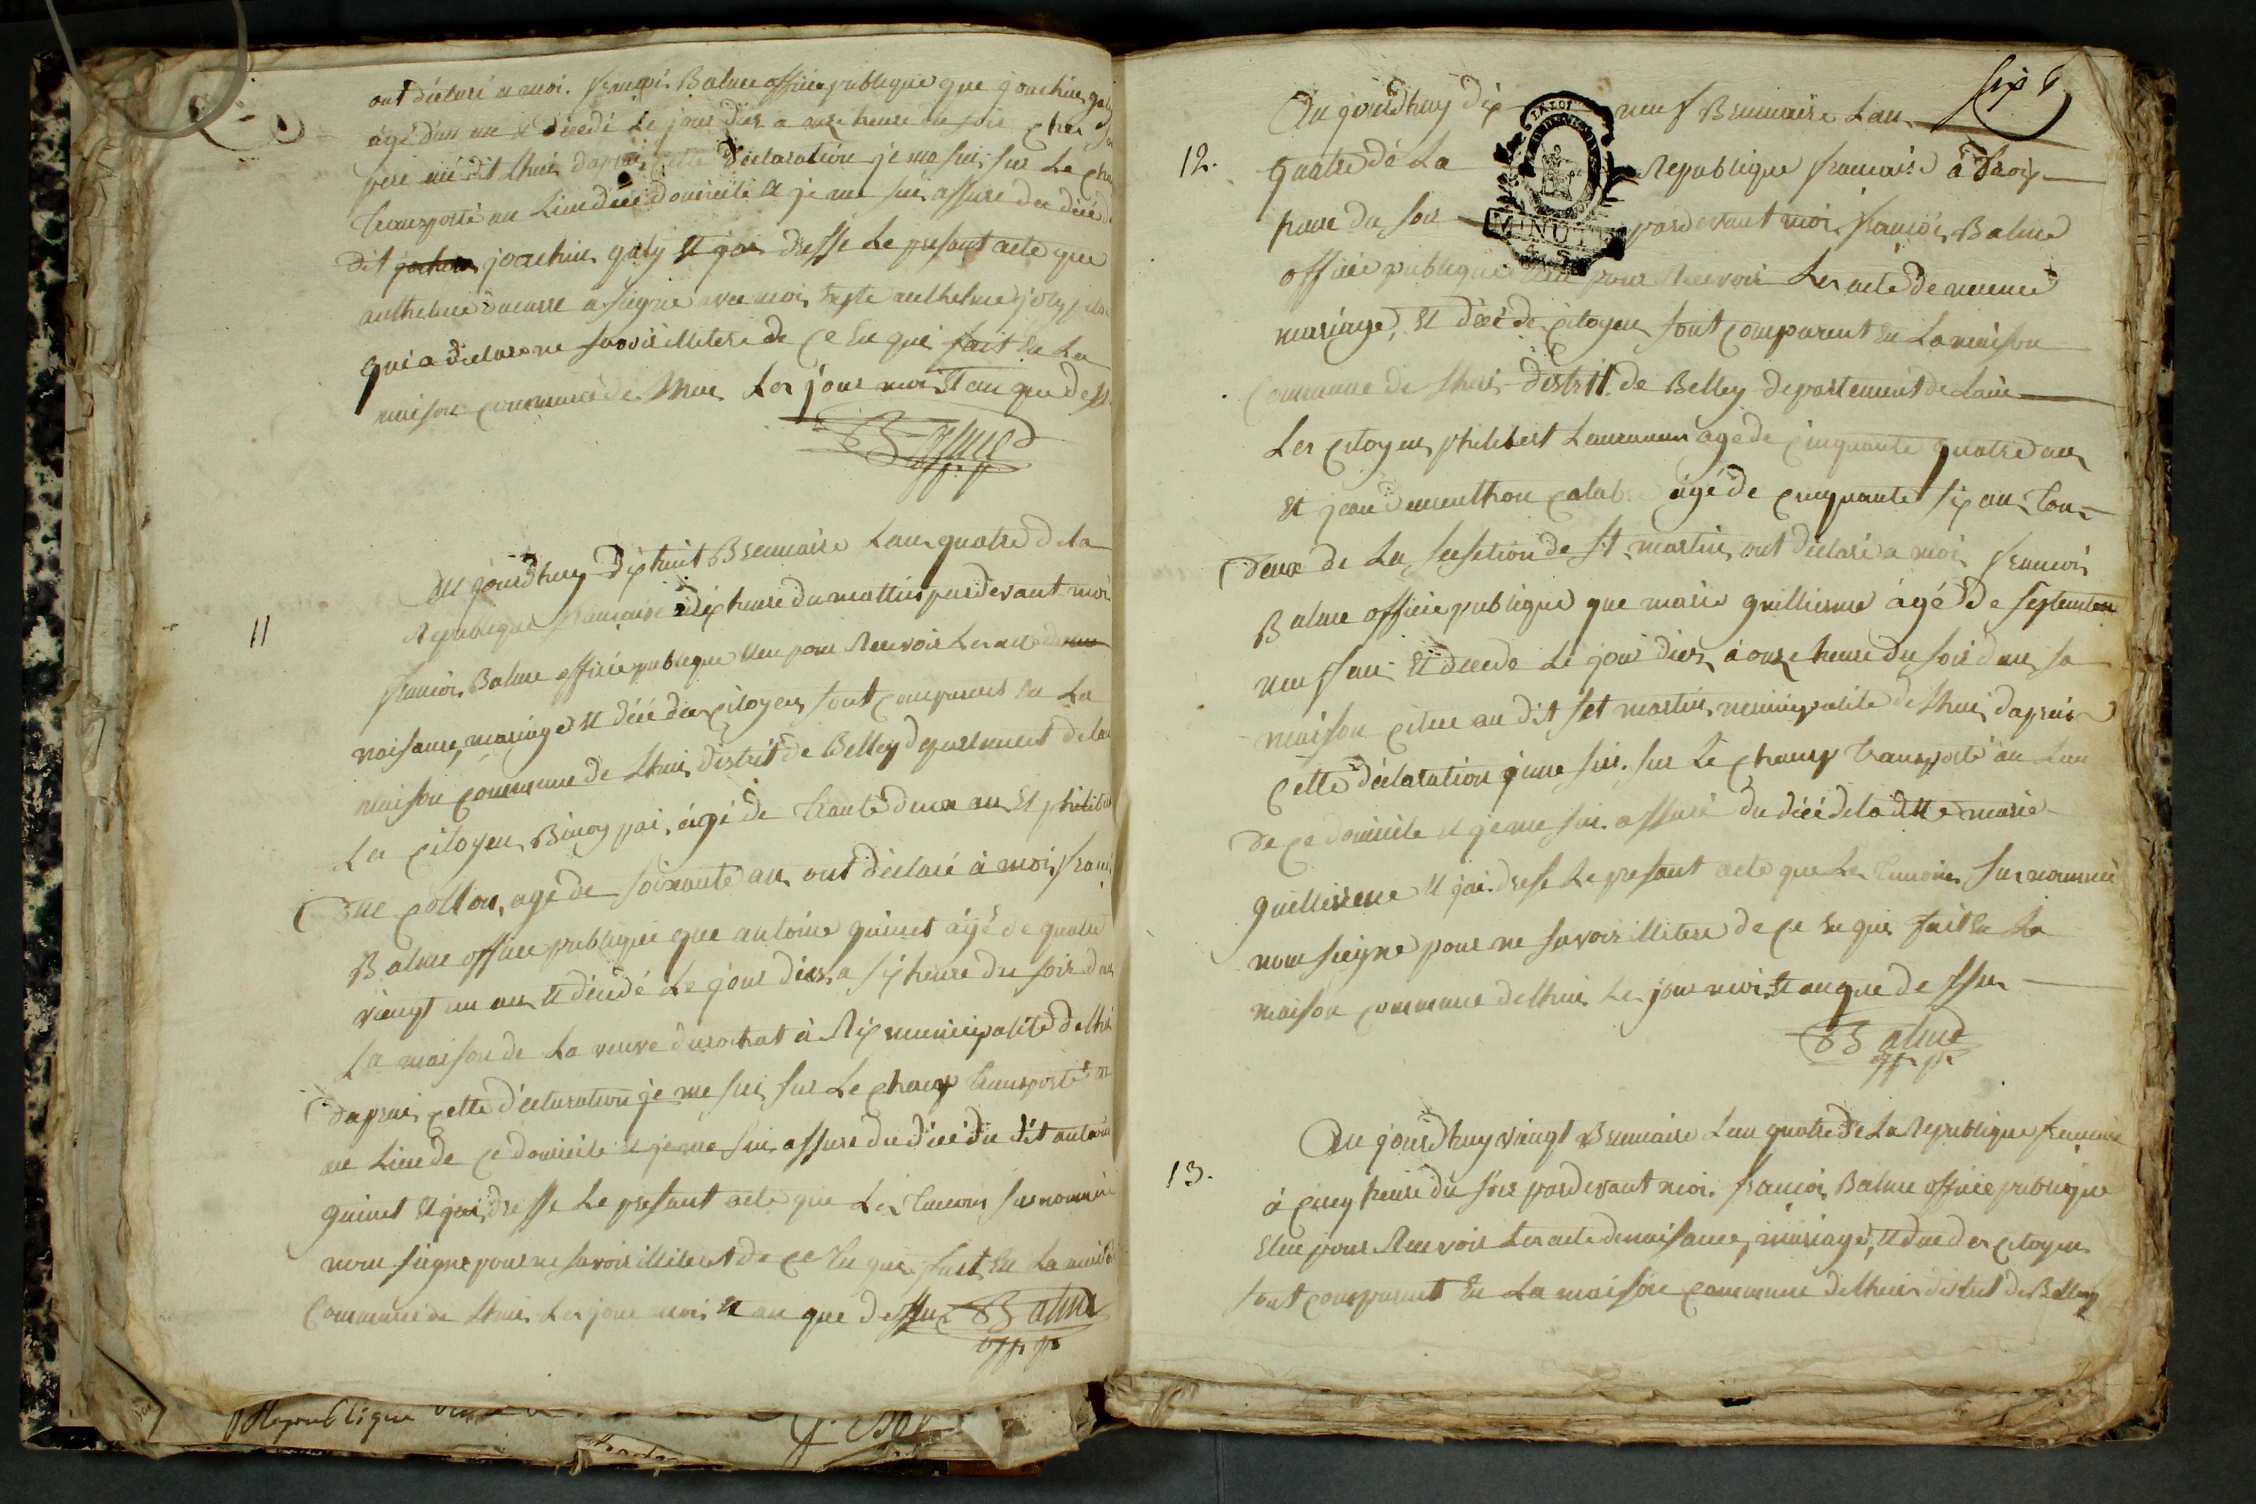 ont déclaré a moi. francoi Balme officie publique que joachim galy
âgé dun an et décédé le jour dier a onze heure du soir chez son
pere au dit lhui, dapres cette déclaration je me sui, sur le champ
transporté au lieu de ce domicile et je me sui assure du décé du
dit joachim galy et jai dressé le present acte que
anthelme ducarre a signe avec moi joly
qui a déclare ne savoir illitere de ce en qui fait en la
maison commune de lhui les jour moi et an que dessu
Balme
off. p.
11
Au jourdhuy dix huit Brumaire lan quatre de la
Republique francaise à dix heure du mattin pardevant moi
francoi Balme officie publique elue pour recevoir les acte de
naisance, mariage et décé des citoyens sont comparus en la
maison commune de lhui, distrit de Belley departement de lain
les citoyen Binoy pai, âgé de trante deux an et philibert
collon, agé de soixante an ont déclaré à moi francoi
Balme officie publique que antoine guinet âgé de quatre
vingt un an et décédé le jour dier a six heure du soir dans
la maison de la veuve durochat à Rix municipalité de lhui
daprai cette déclaration je me sui sur le champ transporté
au lieu de ce domicile et je me sui assure du décé du dit antoine
guinet et jai dresse le present acte que les temoins susnommé
nont signe pour ne savoir illitere de ce en qui fait en la maison
commune de lhui les jour moi et an que dessu Balme
off. p.
six 6
12.
Au jourdhuy dix neuf Brumaire lan
LA LOI
quatre dé la Republique francaise à troix
heure du soir pardevant moi francoi Balme
MINUTE
officie publique elue pour recevoir les acte de naisance
mariage, et décé de citoyen sont comparent en la maison
Commune de lhui distrit de Belley departement de lain
les citoyen philibert Laurencin agé de cinquante quatre an
et jean dementhon calabre âgé de cinquante six an tou
deux de la sesetion de st martin, ont déclaré a moi francoi
Balme officie publique que marie guillierme âgé de septente
neuf an et décédé le jour dier à onze heure du soir dans sa
maison cithue au dit set martin, municipalite de lhui, daprai
cette déclaration je me sui sur le champ transporté au lieu
de ce domicile et je me sui assuré du décé de la dite marie
guillierme et jai dresse le present acte que les temoins susnommé
nont signe pour ne savoir illitere de ce en qui fait en la
maison commune de lhui les jour moi et an que dessu
Balme
off. p.
13.
Au jourdhuy vingt Brumaire lan quatre de la Republique francaise
à cinq heure du soir pardevant moi francoi Balme officie publique
elue pour recevoir les acte de naisance, mariage, et décé des citoyen
sont comparut en la maison commune de lhui distrit de Belley
Republique